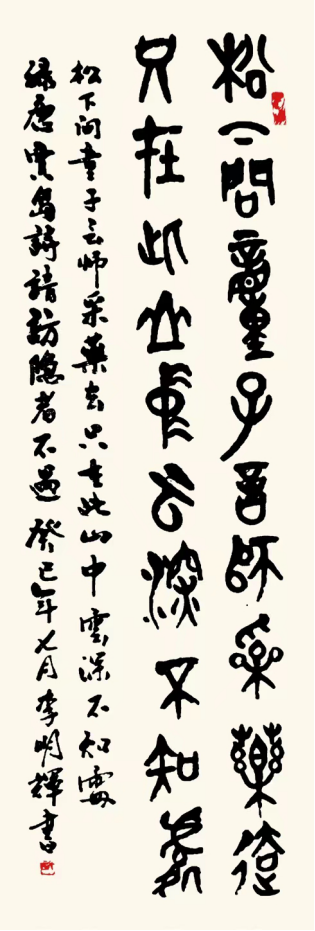 松下問童子言師采藥去
只在此山中云深不知處
松下问童子言师采藥去只在此山中雲深不知處
録唐贾岛诗请訪隐者不遇癸巳年七月李明輝書